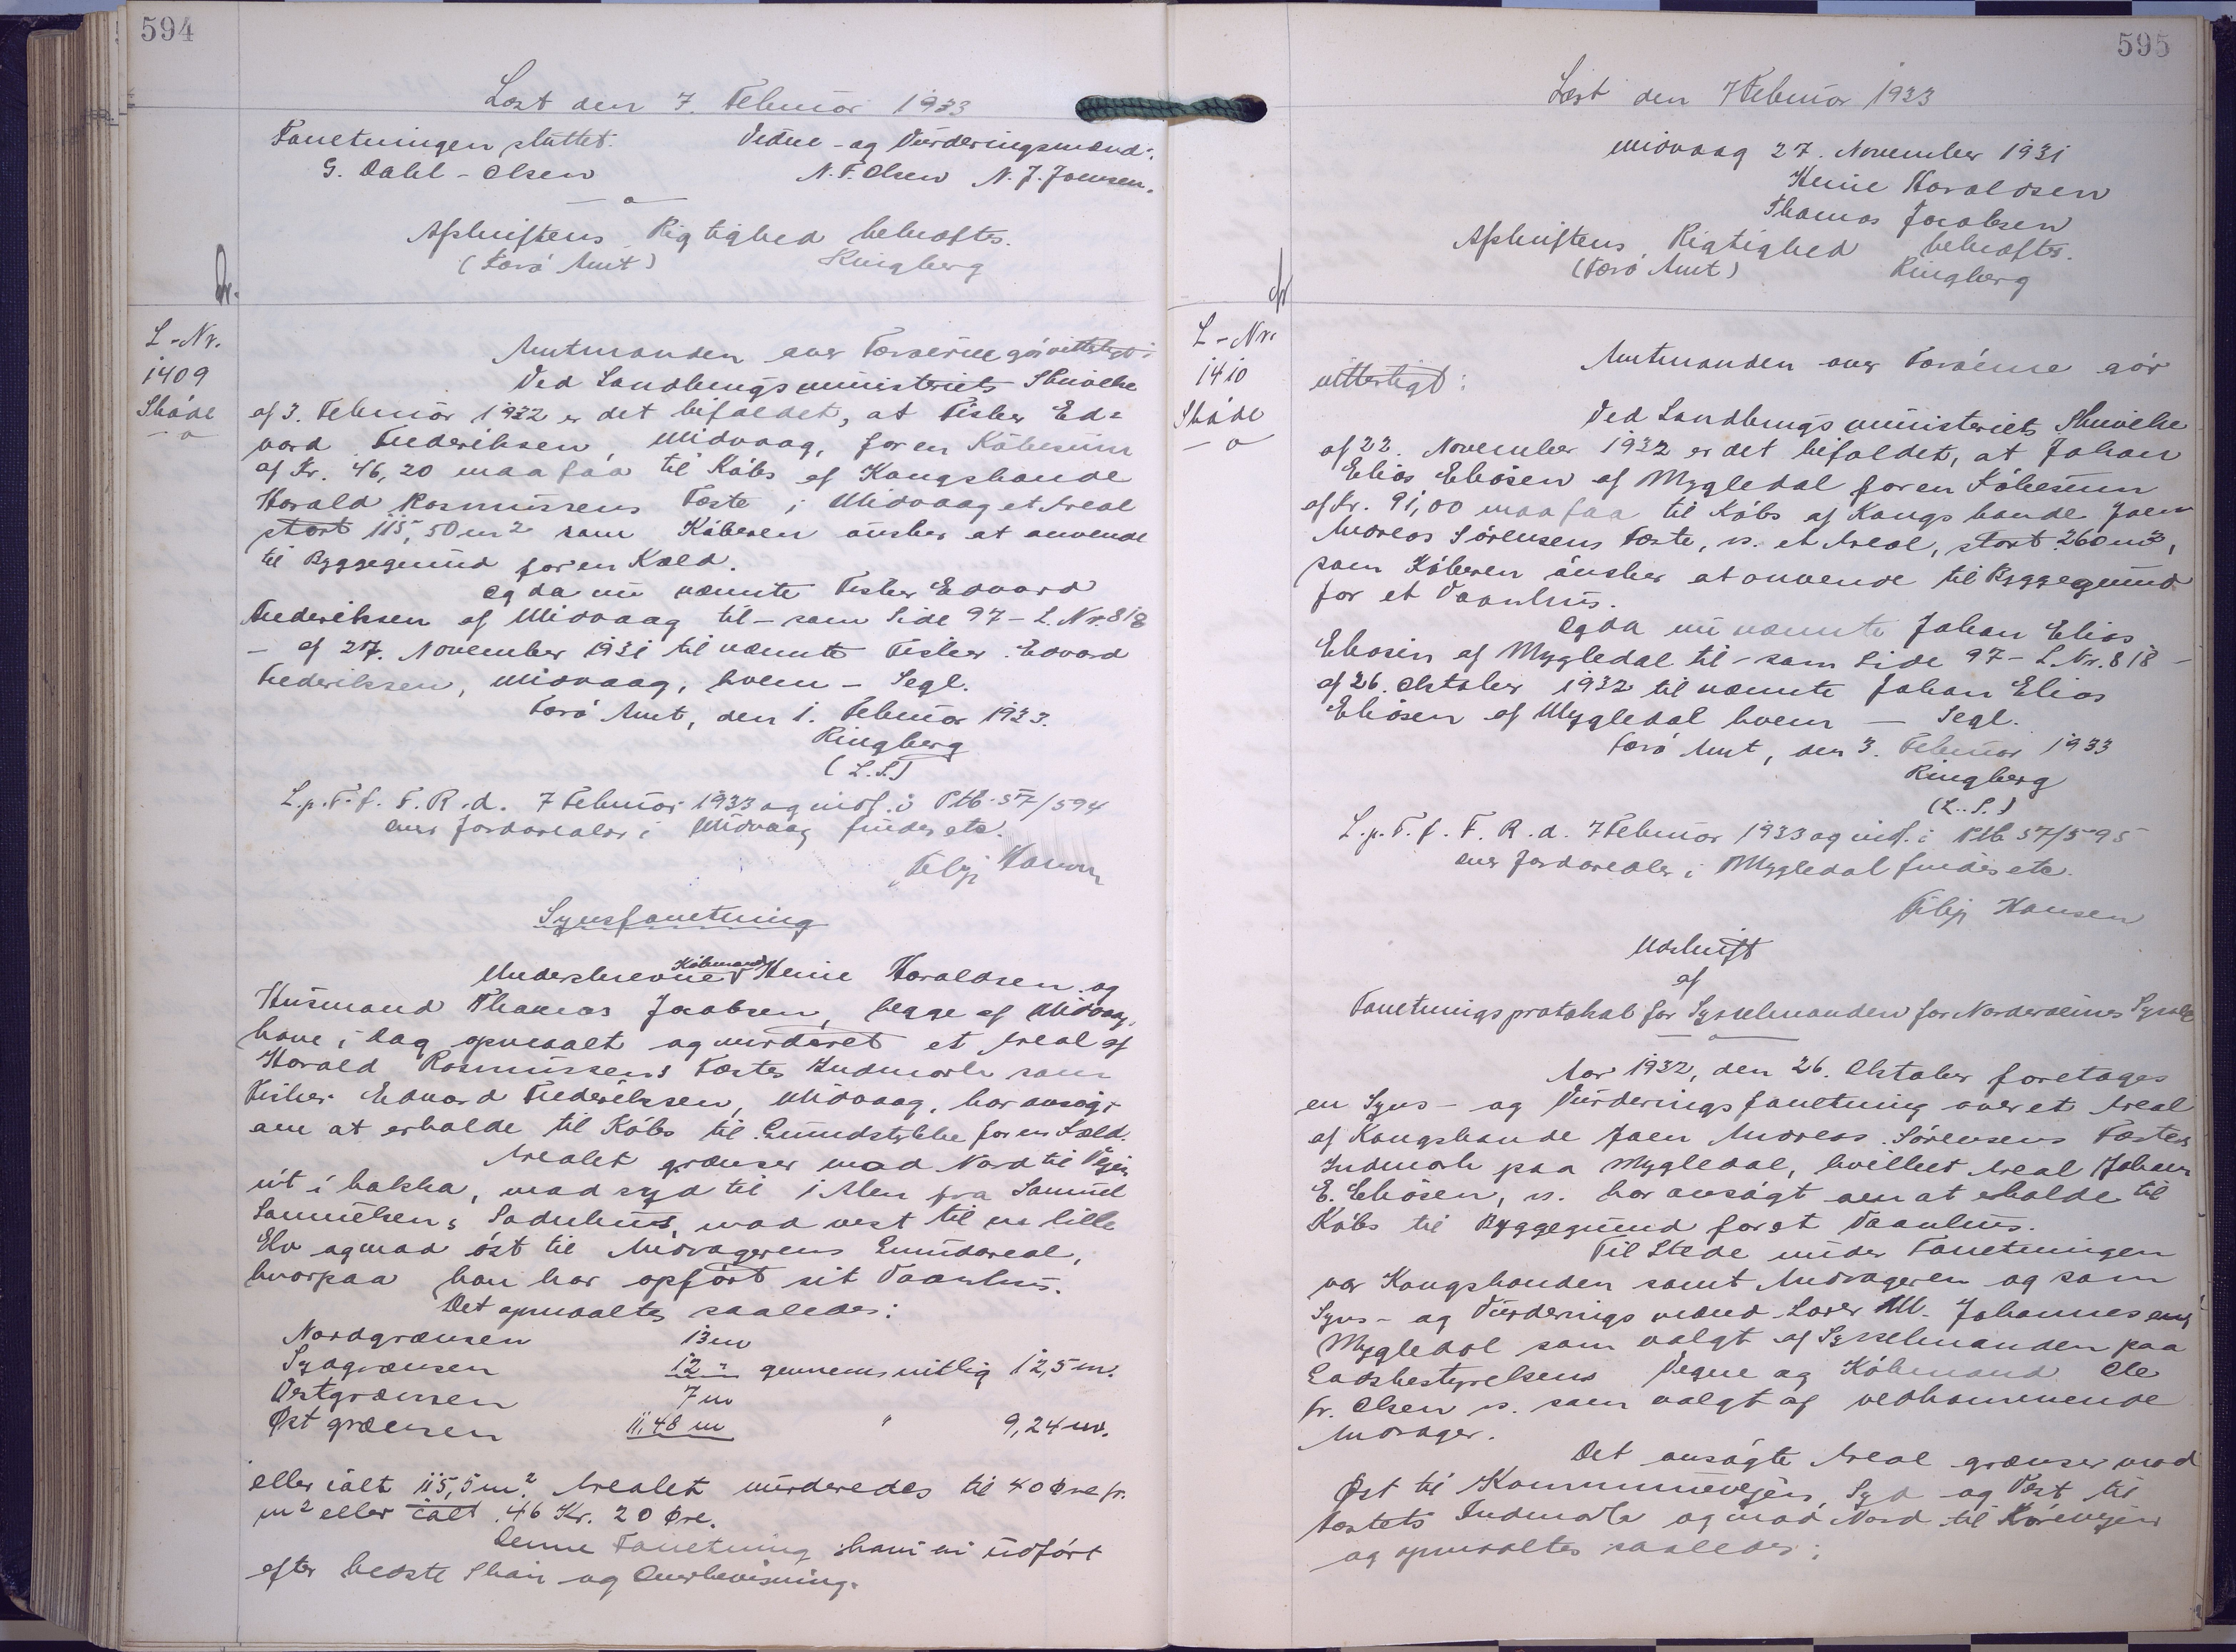 594
Læst den 7. Februar 1933
Forretningen sluttet. Vidne- og Vurderingsmænd:
G. Dahl-Olsen N. F. Olsen N. J. Joensen.
— o —
Afskriftens Rigtighed bekræftes.
(Færø Amt) Ringberg
L-Nr.
1409
Skøde
— o
Amtmanden over Færøerne gør vitterligt:
Ved Landbrugsministeriets Skrivelse
af 3. Februar 1932 er det bifaldet, at Fisker Ed=
vard Frederiksen, Midvaag, for en Købesum
af Kr. 46,20 maa faa til Købs af Kongsbonde
Harald Rasmussens Fæste i Midvaag et Areal
stort 115,50 m² som Køberen ønsker at anvende
til Byggegrund for en Kæld.
Og da nu nævnte Fisker Edvard
Frederiksen af Midvaag til - som Side 97 - L. Nr. 818
- af 27. November 1931 til nævnte Fisker Edvard
Frederikssen, Midvaag, hvem - Segl.
Færø Amt, den 1. Februar 1933.
Ringberg
(L.S.)
L.p.F.f. F.R.d. 7 Februar 1933 og indf. i Ptb. 57/594
over Jordarealer i Midvaag findes etc.
Filip Hansen
Synsforretning
Underskrevne Købmand Heine Haraldsen og
Husmand Thomas Jacobsen, begge af Midvaag,
have i Dag opmaalt og vurderet et Areal af
Harald Rasmussens Fæstes Indmark som
Fisker Edvard Frederikssen, Midvaag, har ansøgt
om at erholde til Købs til Grundstykke for en Kæld.
Arealet grænser mod Nord til Vejin
út i bakka, mod syd til i Áen fra Samuel
Samuelsens Sadulhus, mod vest til en lille
Elv og mod øst til Andragerens Grundareal,
hvorpaa han har opført sit Vaanhus.
Det opmaaltes saaledes:
Nordgrænsen 13 m
Sydgrænsen 12 " gennemsnitlig 12,5 m.
Vestgrænsen 7 m
Østgrænsen 11,48 m " 9,24 m.
eller ialt 115,5 m². Arealet vurderedes til 40 Øre pr.
m² eller ialt 46 Kr. 20 Øre.
Denne Forretning have vi udført
efter bedste Skøn og Overbevisning.
595
Læst den 7 Februar 1933
Midvaag 27. November 1931
Heine Haraldsen
Thomas Jacobsen
Afskriftens Rigtighed bekræftes.
(Færø Amt) Ringberg
L-Nr.
1410
Skøde
— o
Amtmanden over Færøerne gør
vitterligt:
Ved Landbrugsministeriets Skrivelse
af 23. November 1932 er det bifaldet, at Johan
Elias Eliasen af Mygledal for en Købesum
af Kr. 91,00 maa faa til Købs af Kongsbonde Joen
Andreas Sørensens Fæste, is. et Areal, stort 260 m²,
som Køberen ønsker at anvende til Byggegrund
for et Vaanhus.
Og da nu nævnte Johan Elias
Eliasen af Mygledal til - som Side 97 - L. Nr. 818 -
af 26. Oktober 1932 til nævnte Johan Elias
Eliasen af Mygledal hvem — Segl.
Færø Amt, den 3. Februar 1933
Ringberg
(L.S.)
L.p.F.f. F.R.d. 7 Februar 1933 og indf. i Ptb 57/595
over Jordarealer i Mygledal findes etc.
Filip Hansen
Udskrift
af
Forretningsprotokol for Sysselmanden for Norderøernes Syssel
— o —
Aar 1932, den 26. Oktober foretoges
en Syns- og Vurderingsforretning over et Areal
af Kongsbonde Joen Andreas Sørensens Fæstes
Indmark paa Mygledal, hvilket Areal Johan
E. Eliasen, is. har ansøgt om at erholde til
Købs til Byggegrund for et Vaanhus.
Til Stede under Forretningen
var Kongsbonden samt Andrageren og som
Syns- og Vurderingsmænd Lærer M. Johannesen,
Mygledal som valgt af Sysselmanden paa
Godsbestyrelsens Vegne og Købmand Ole
Fr. Olsen is. som valgt af vedkommende
Andrager.
Det ansøgte Areal grænser mod
Øst til Kommunevejen, Syd og Vest til
Fæstets Indmark og mod Nord til Kørevejen
og opmaaltes saaledes: